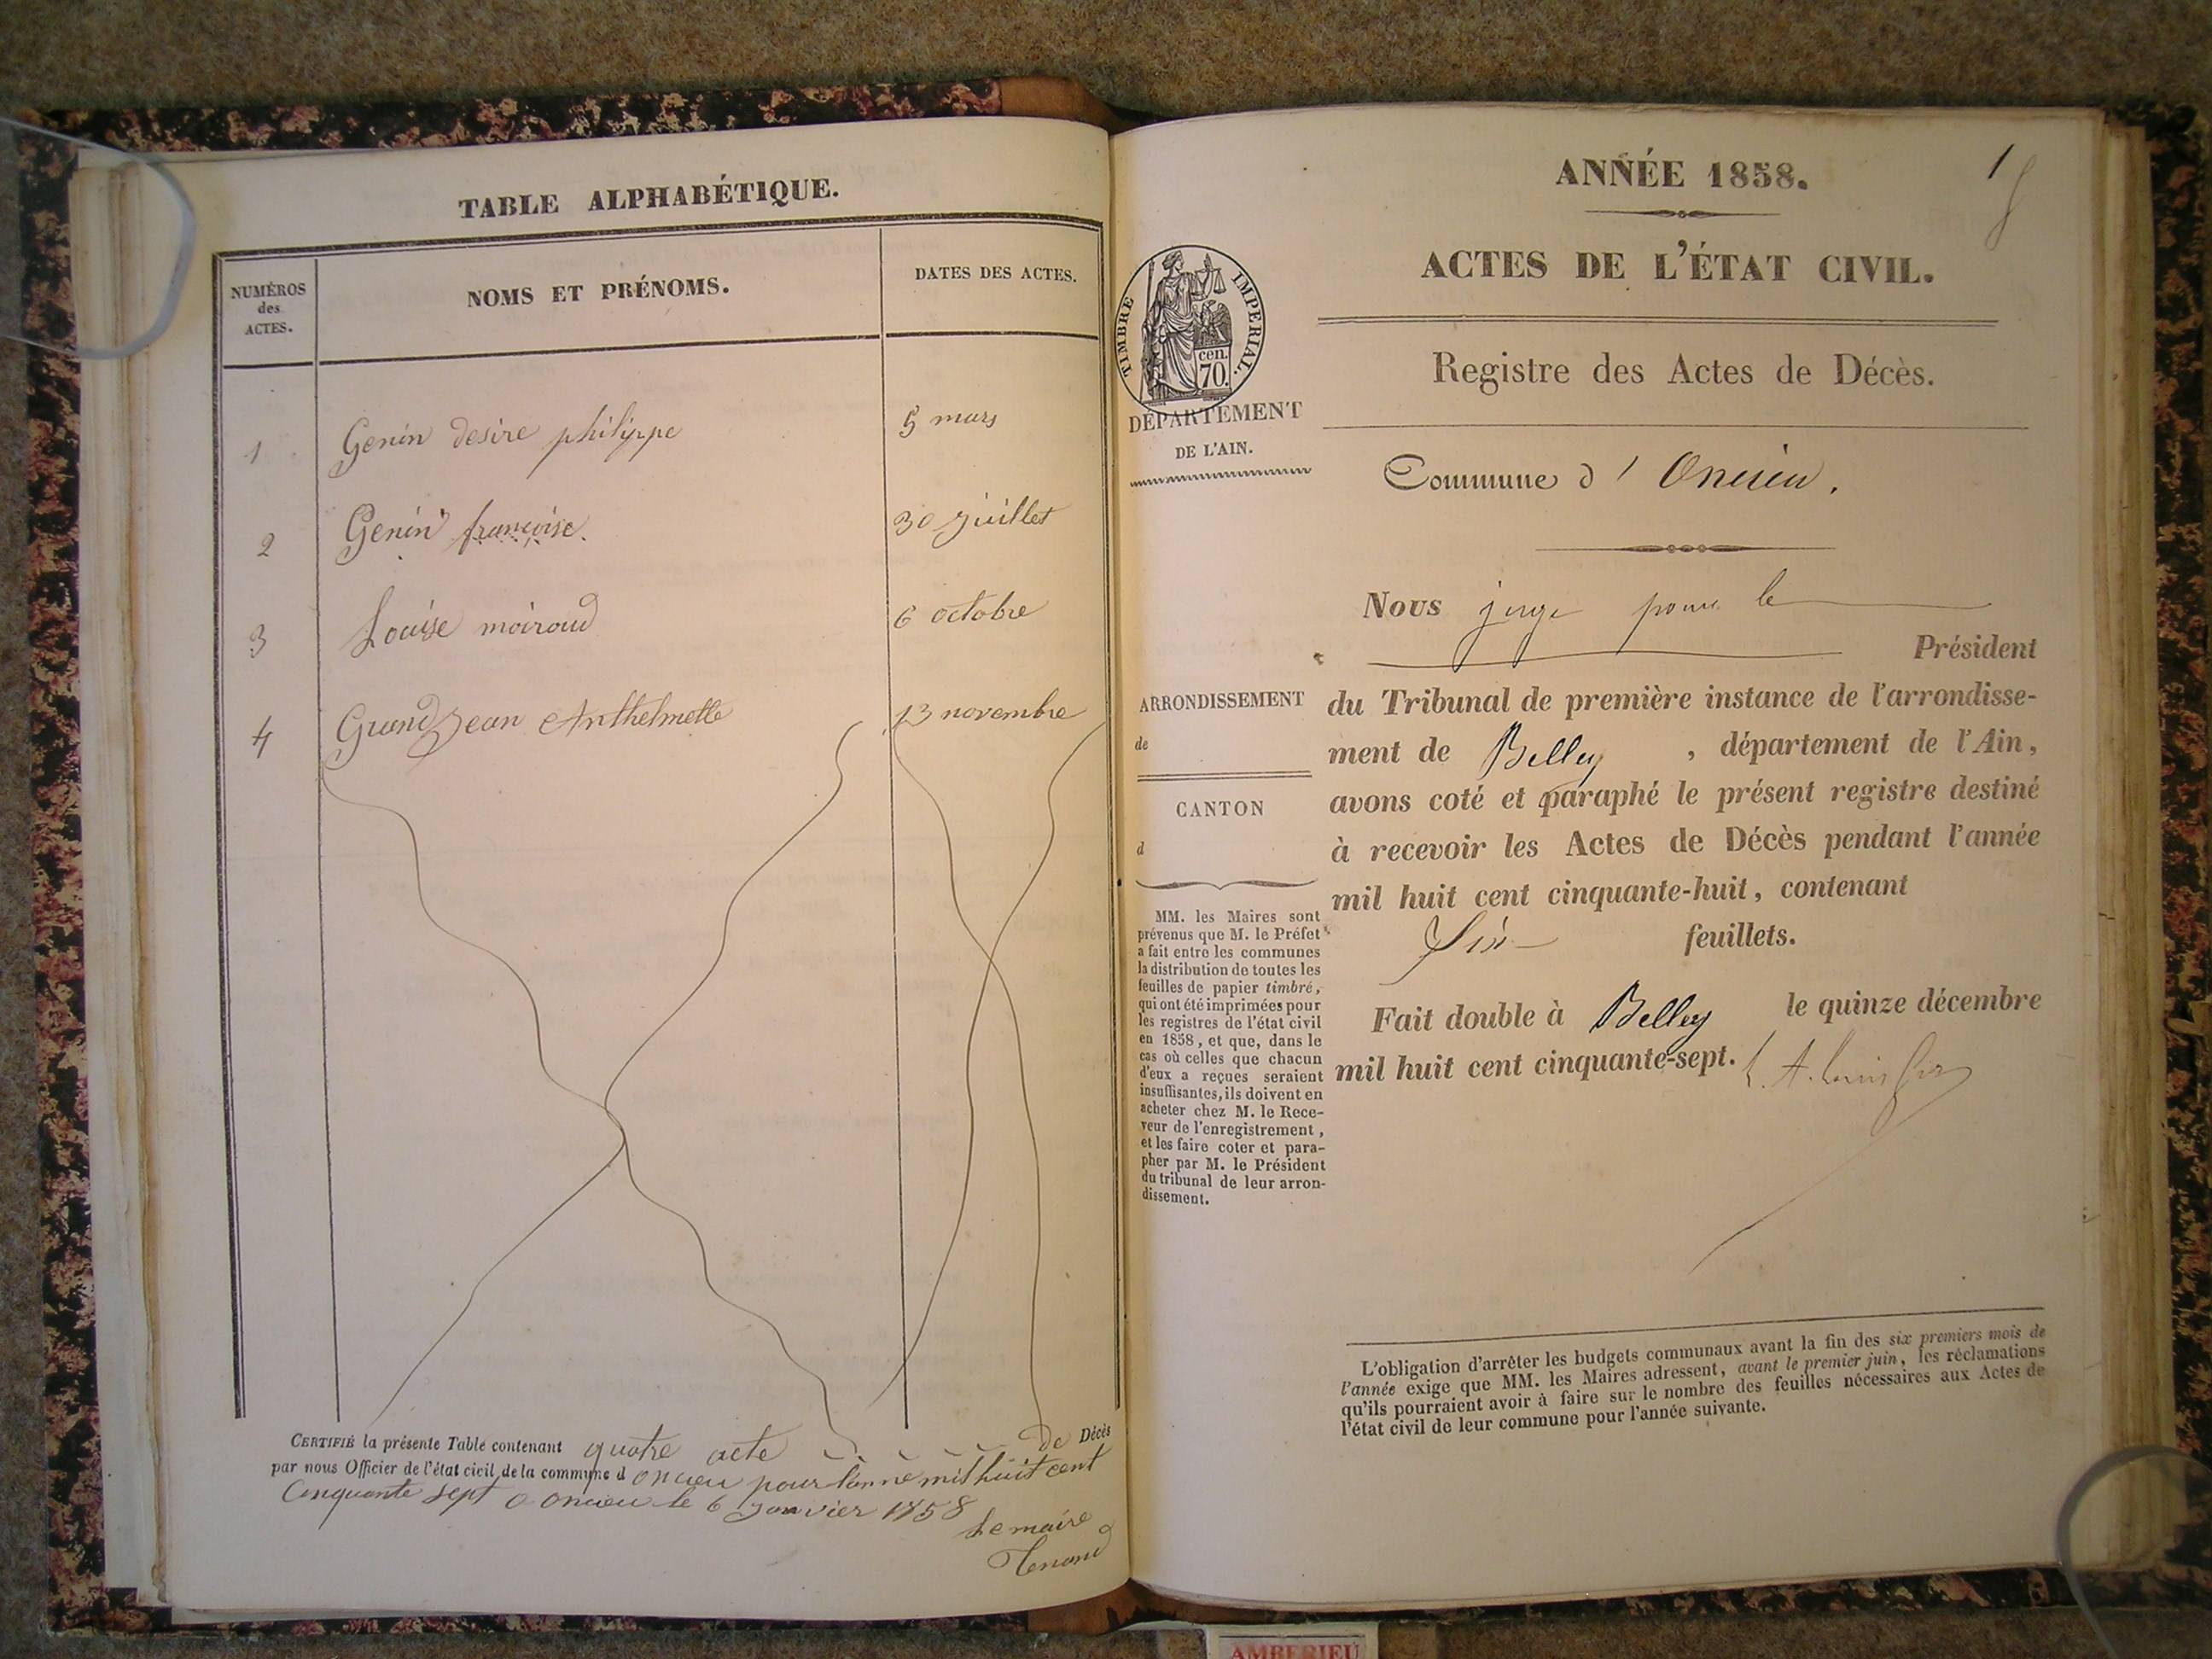 TABLE ALPHABÉTIQUE.
NUMÉROS
des
ACTES.
NOMS ET PRÉNOMS.
DATES DES ACTES.
1 Genin desire philippe 5 mars
2 Genin françoise. 30 juillet
3 Louise moiroud 6 octobre
4 Grand Jean Anthelmette 13 novembre
CERTIFIÉ la présente Table contenant quatre acte de Décès
par nous Officier de l'état civil de la commune d oncieu pour lanné mil huit cent
Cinquante sept a oncieu le 6 Janvier 1858
Le maire
Tenand
ANNÉE 1858.
1
ACTES DE L'ÉTAT CIVIL.
TIMBRE IMPERIAL.
cen.
70.
Registre des Actes de Décès.
DÉPARTEMENT
DE L'AIN.
Commune d'Oncieu.
Nous juge pour le
Président
ARRONDISSEMENT
de
CANTON
d
du Tribunal de première instance de l'arrondisse-
ment de Belley , département de l'Ain,
avons coté et paraphé le présent registre destiné
à recevoir les Actes de Décès pendant l'année
mil huit cent cinquante-huit, contenant
Six feuillets.
Fait double à Belley le quinze décembre
mil huit cent cinquante-sept.
MM. les Maires sont
prévenus que M. le Préfet
a fait entre les communes
la distribution de toutes les
feuilles de papier timbré,
qui ont été imprimées pour
les registres de l'état civil
en 1858, et que, dans le
cas où celles que chacun
d'eux a reçues seraient
insuffisantes, ils doivent en
acheter chez M. le Rece-
veur de l'enregistrement,
et les faire coter et para-
pher par M. le Président
du tribunal de leur arron-
dissement.
L'obligation d'arrêter les budgets communaux avant la fin des six premiers mois de
l'année exige que MM. les Maires adressent, avant le premier juin, les réclamations
qu'ils pourraient avoir à faire sur le nombre des feuilles nécessaires aux Actes de
l'état civil de leur commune pour l'année suivante.
AMBERIEU